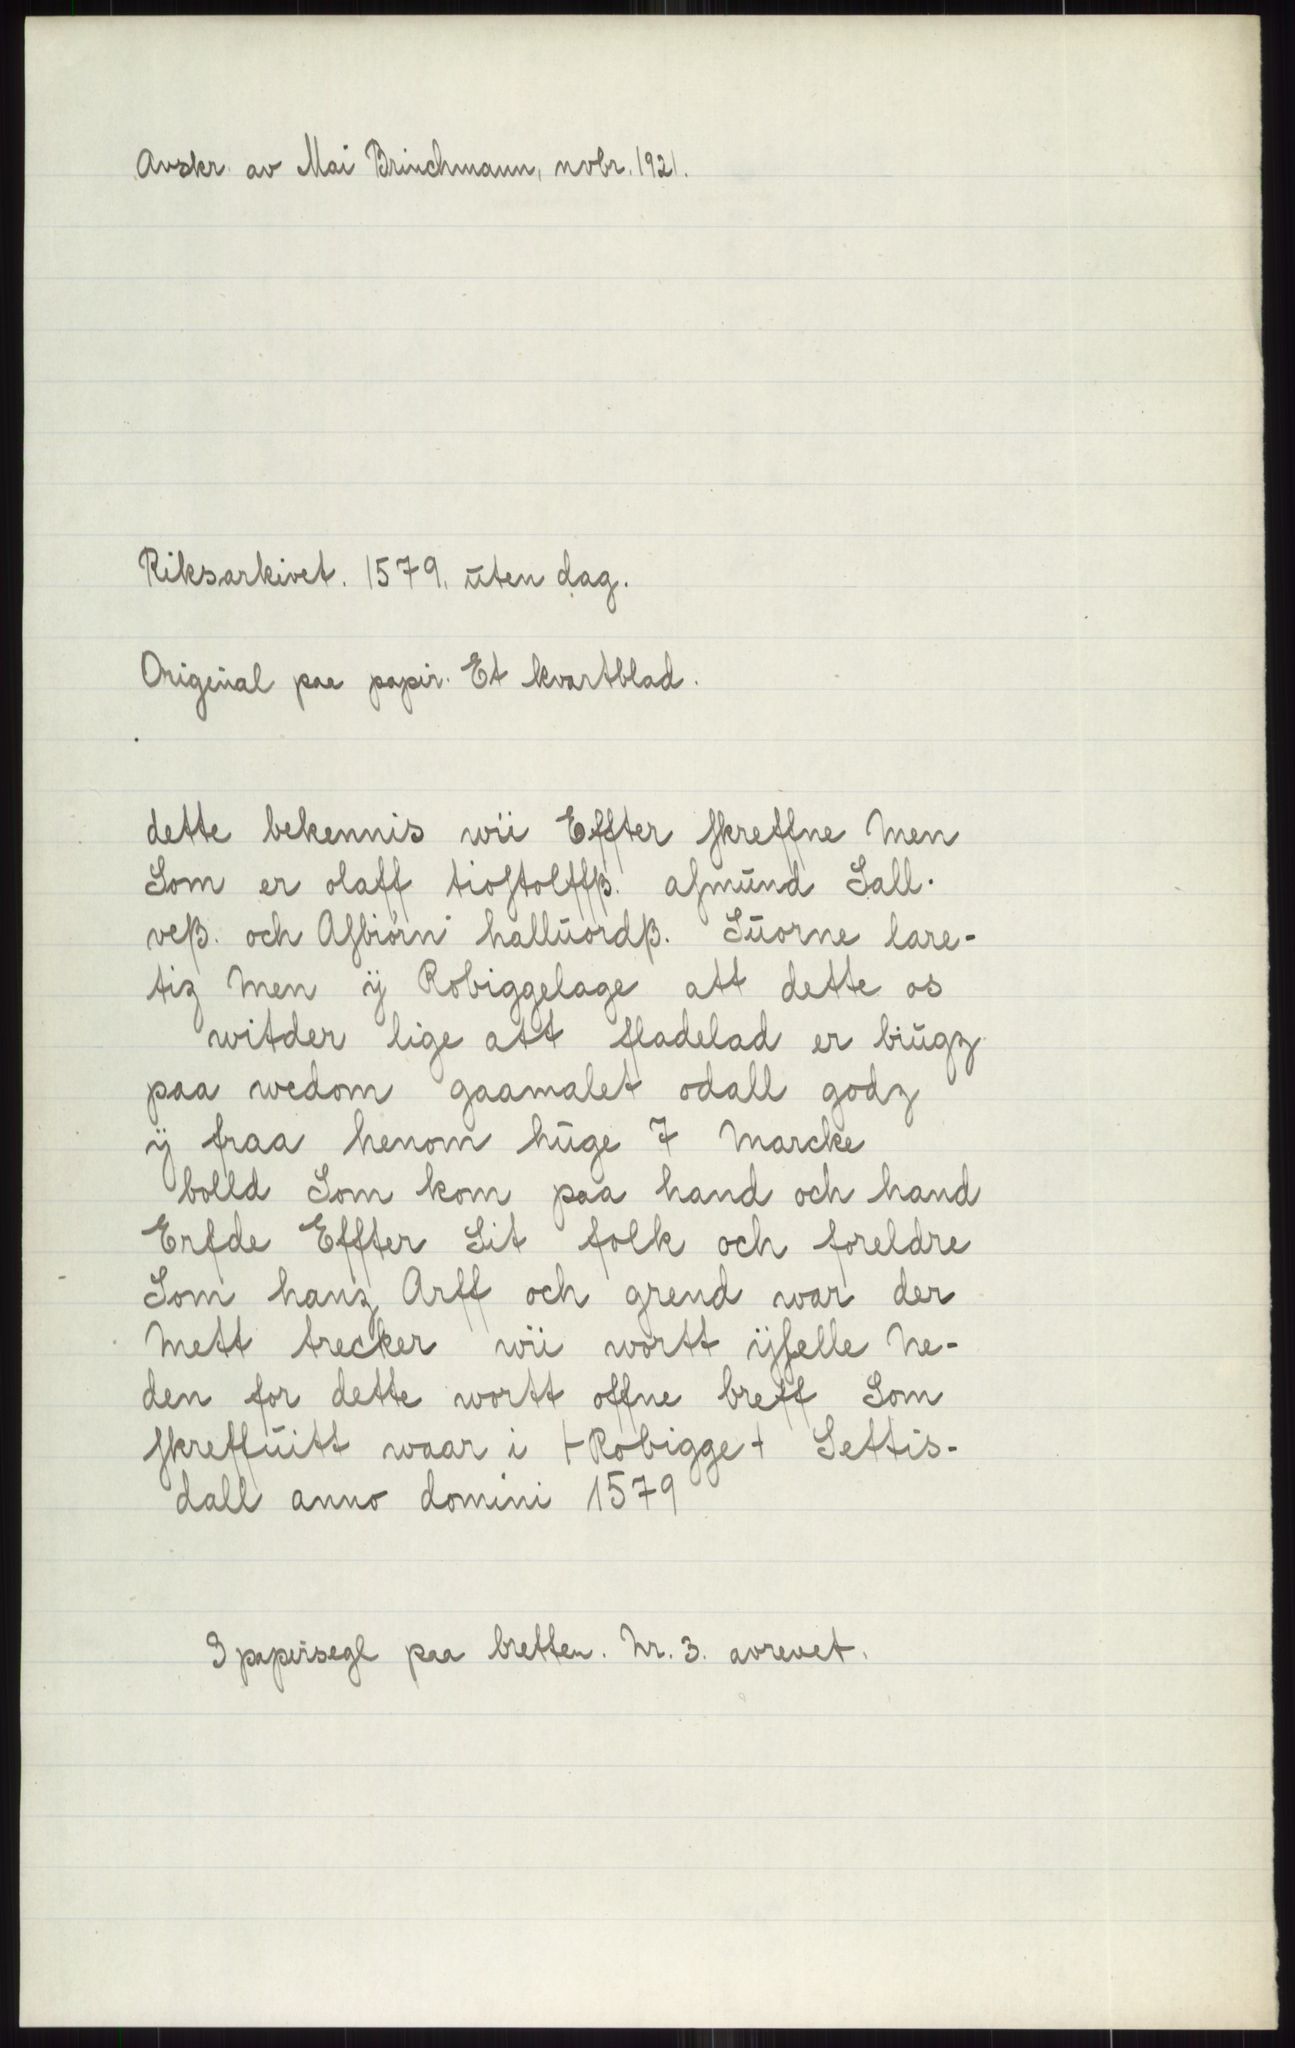 Avskr. av Mai Brinchmann, novbr. 1921.
Riksarkivet. 1579. uten dag.
Original paa papir. Et kvartblad.
dette bekennis wii Effter skreffne Men
Som er olaff tiostolffß. asmūnd Sall-
veß. och Asbiørn hallūordß. Sūorne lare-
tiz Men ÿ Robiggelage att dette os
witder lige att fladelad er biūgz
paa wedom gaamalet odall godz
ÿ fraa henom hūge 7 Marcke
bolld Som kom paa hand och hand
Erfde Effter Sit folk och foreldre
Som hanz Arff och grend war der
Mett trecker wii wortt ÿselle Ne-
den for dette wortt offne breff Som
skreffūitt waar i +Robigge+ Settis-
dall anno domini 1579
3 papirsegl paa bretten. Nr. 3. avrevet.